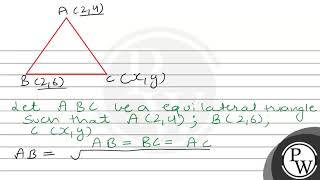 A (2,4)
B (2,6) C (x,y)
Let ABC be a equilateral triangle
such that A (2,4) ; B (2,6),
C (x,y)
AB = BC = AC
AB = √
PW